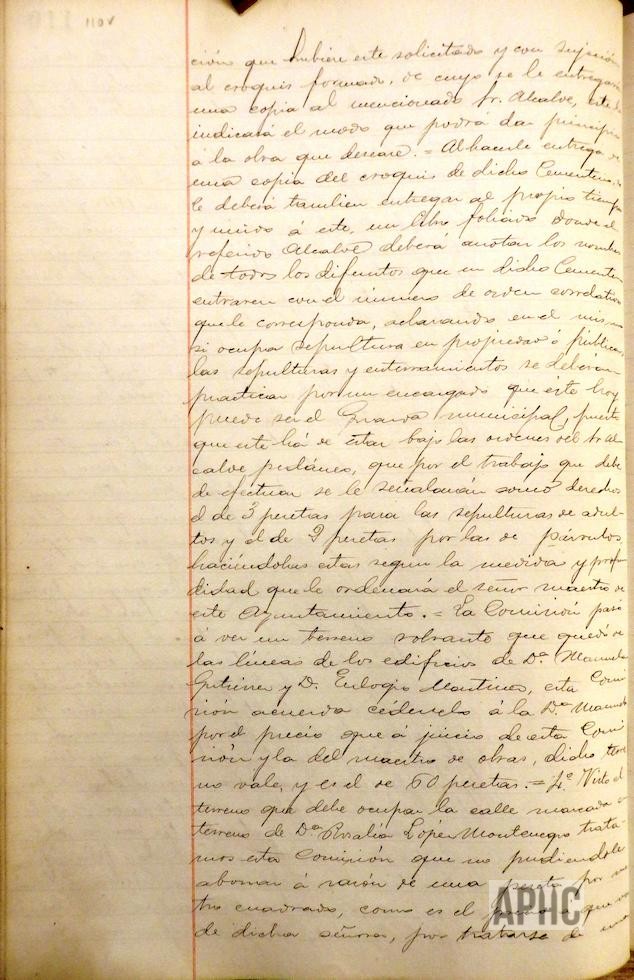 110v
ción que hubiere este solicitado y con sujeción
al croquis formado, de cuyo se le entregará
una copia al mencionado Sr. Alcalde, este le
indicará el modo que podrá dar principio
á la obra que deseare. = Al hacerle entrega de
una copia del croquis de dicho Cementerio,
le deberá tambien entregar al propio tiempo
y unido á este, un libro foliado donde el
referido Alcalde deberá anotar los nombres
de todos los difuntos que en dicho Cementerio
entraren con el número de orden correlativo
que le corresponda, aclarando en el mismo
si ocupa sepultura en propiedad ó pública,
las sepulturas y enterramientos se deberán
practicar por un encargado que este hoy
puede ser el Guarda municipal, puesto
que este há de estar bajo las ordenes del Sr. Al
calde pedáneo, que por el trabajo que debe
de efectuar se le señalarán como derechos
el de 3 pesetas para las sepulturas de adul
tos y el de 2 pesetas por las de párvulos
haciéndolas estas segun la medida y profun
didad que le ordenará el señor maestro de
este Ayuntamiento. = La Comisión pasó
á ver un terreno sobrante que quedó de
las líneas de los edificios de Dª Manuela
Gutierrez y D. Eulogio Martinez, esta Comi
sión acuerda cederselo á la Dª Manuela
por el precio que á juicio de esta Comi
sión y la del maestro de obras, dicho terre
no vale, y es el de 60 pesetas. = 4º Visto el
terreno que debe ocupar la calle marcada
terreno de Dª Rosalía López Montenegro trata
mos esta Comisión que no pudiendole
abonar á razón de una peseta por me
tro cuadrado, como es el
de dicha señora, por tratarse de una
APHC